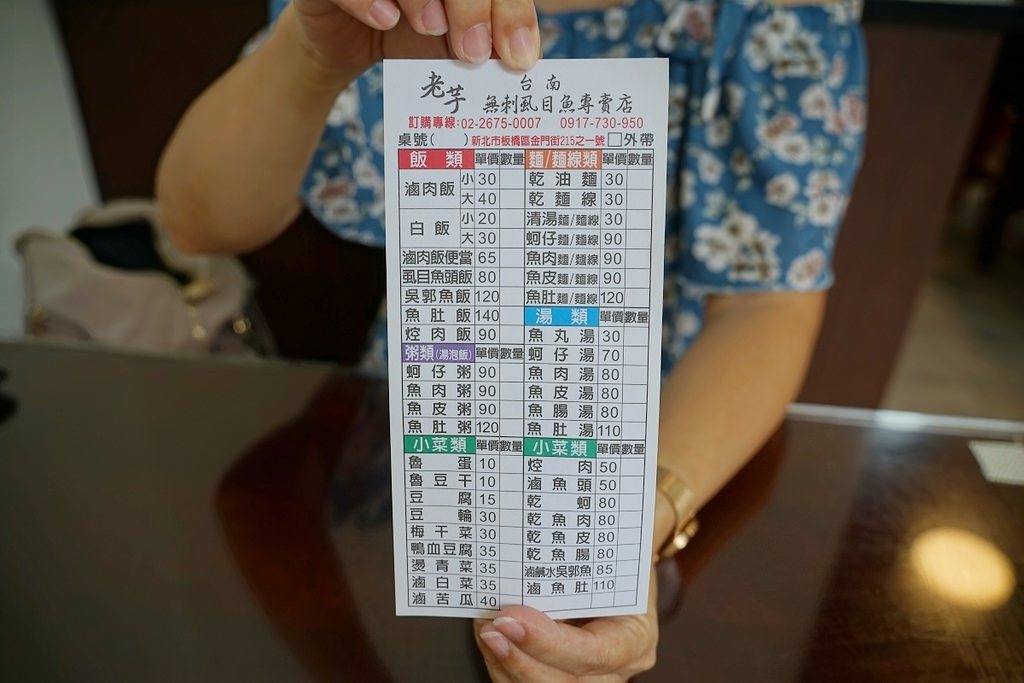 老芋 台南
無刺虱目魚專賣店
訂購專線:02-2675-0007 0917-730-950
桌號( ) 新北市板橋區金門街215之一號 □外帶
飯類 單價 數量
滷肉飯 小 30
大 40
白飯 小 20
大 30
滷肉飯便當 65
虱目魚頭飯 80
吳郭魚飯 120
魚肚飯 140
焢肉飯 90
粥類(湯泡飯) 單價 數量
蚵仔粥 90
魚肉粥 90
魚皮粥 90
魚肚粥 120
小菜類 單價 數量
魯蛋 10
魯豆干 10
豆腐 15
豆輪 30
梅干菜 30
鴨血豆腐 35
燙青菜 35
滷白菜 35
滷苦瓜 40
麵/麵線類 單價 數量
乾油麵 30
乾麵線 30
清湯麵/麵線 30
蚵仔麵/麵線 90
魚肉麵/麵線 90
魚皮麵/麵線 90
魚肚麵/麵線 120
湯類 單價 數量
魚丸湯 30
蚵仔湯 70
魚肉湯 80
魚皮湯 80
魚腸湯 80
魚肚湯 110
小菜類 單價 數量
焢肉 50
滷魚頭 50
乾蚵 80
乾魚肉 80
乾魚皮 80
乾魚腸 80
滷鹹水吳郭魚 85
滷魚肚 110